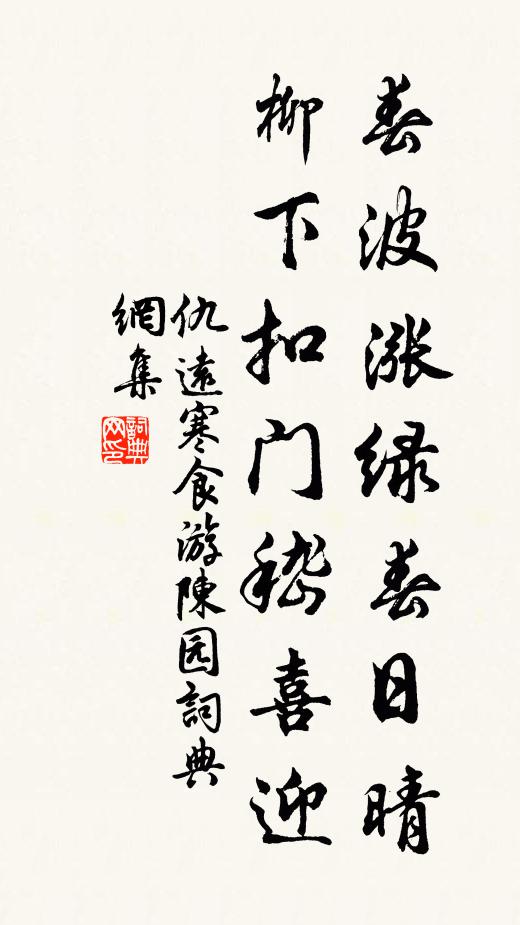 春波涨绿春日晴
柳下扣门嵇喜迎
仇遠寒食游陳园詞典
網集
詞典
网印